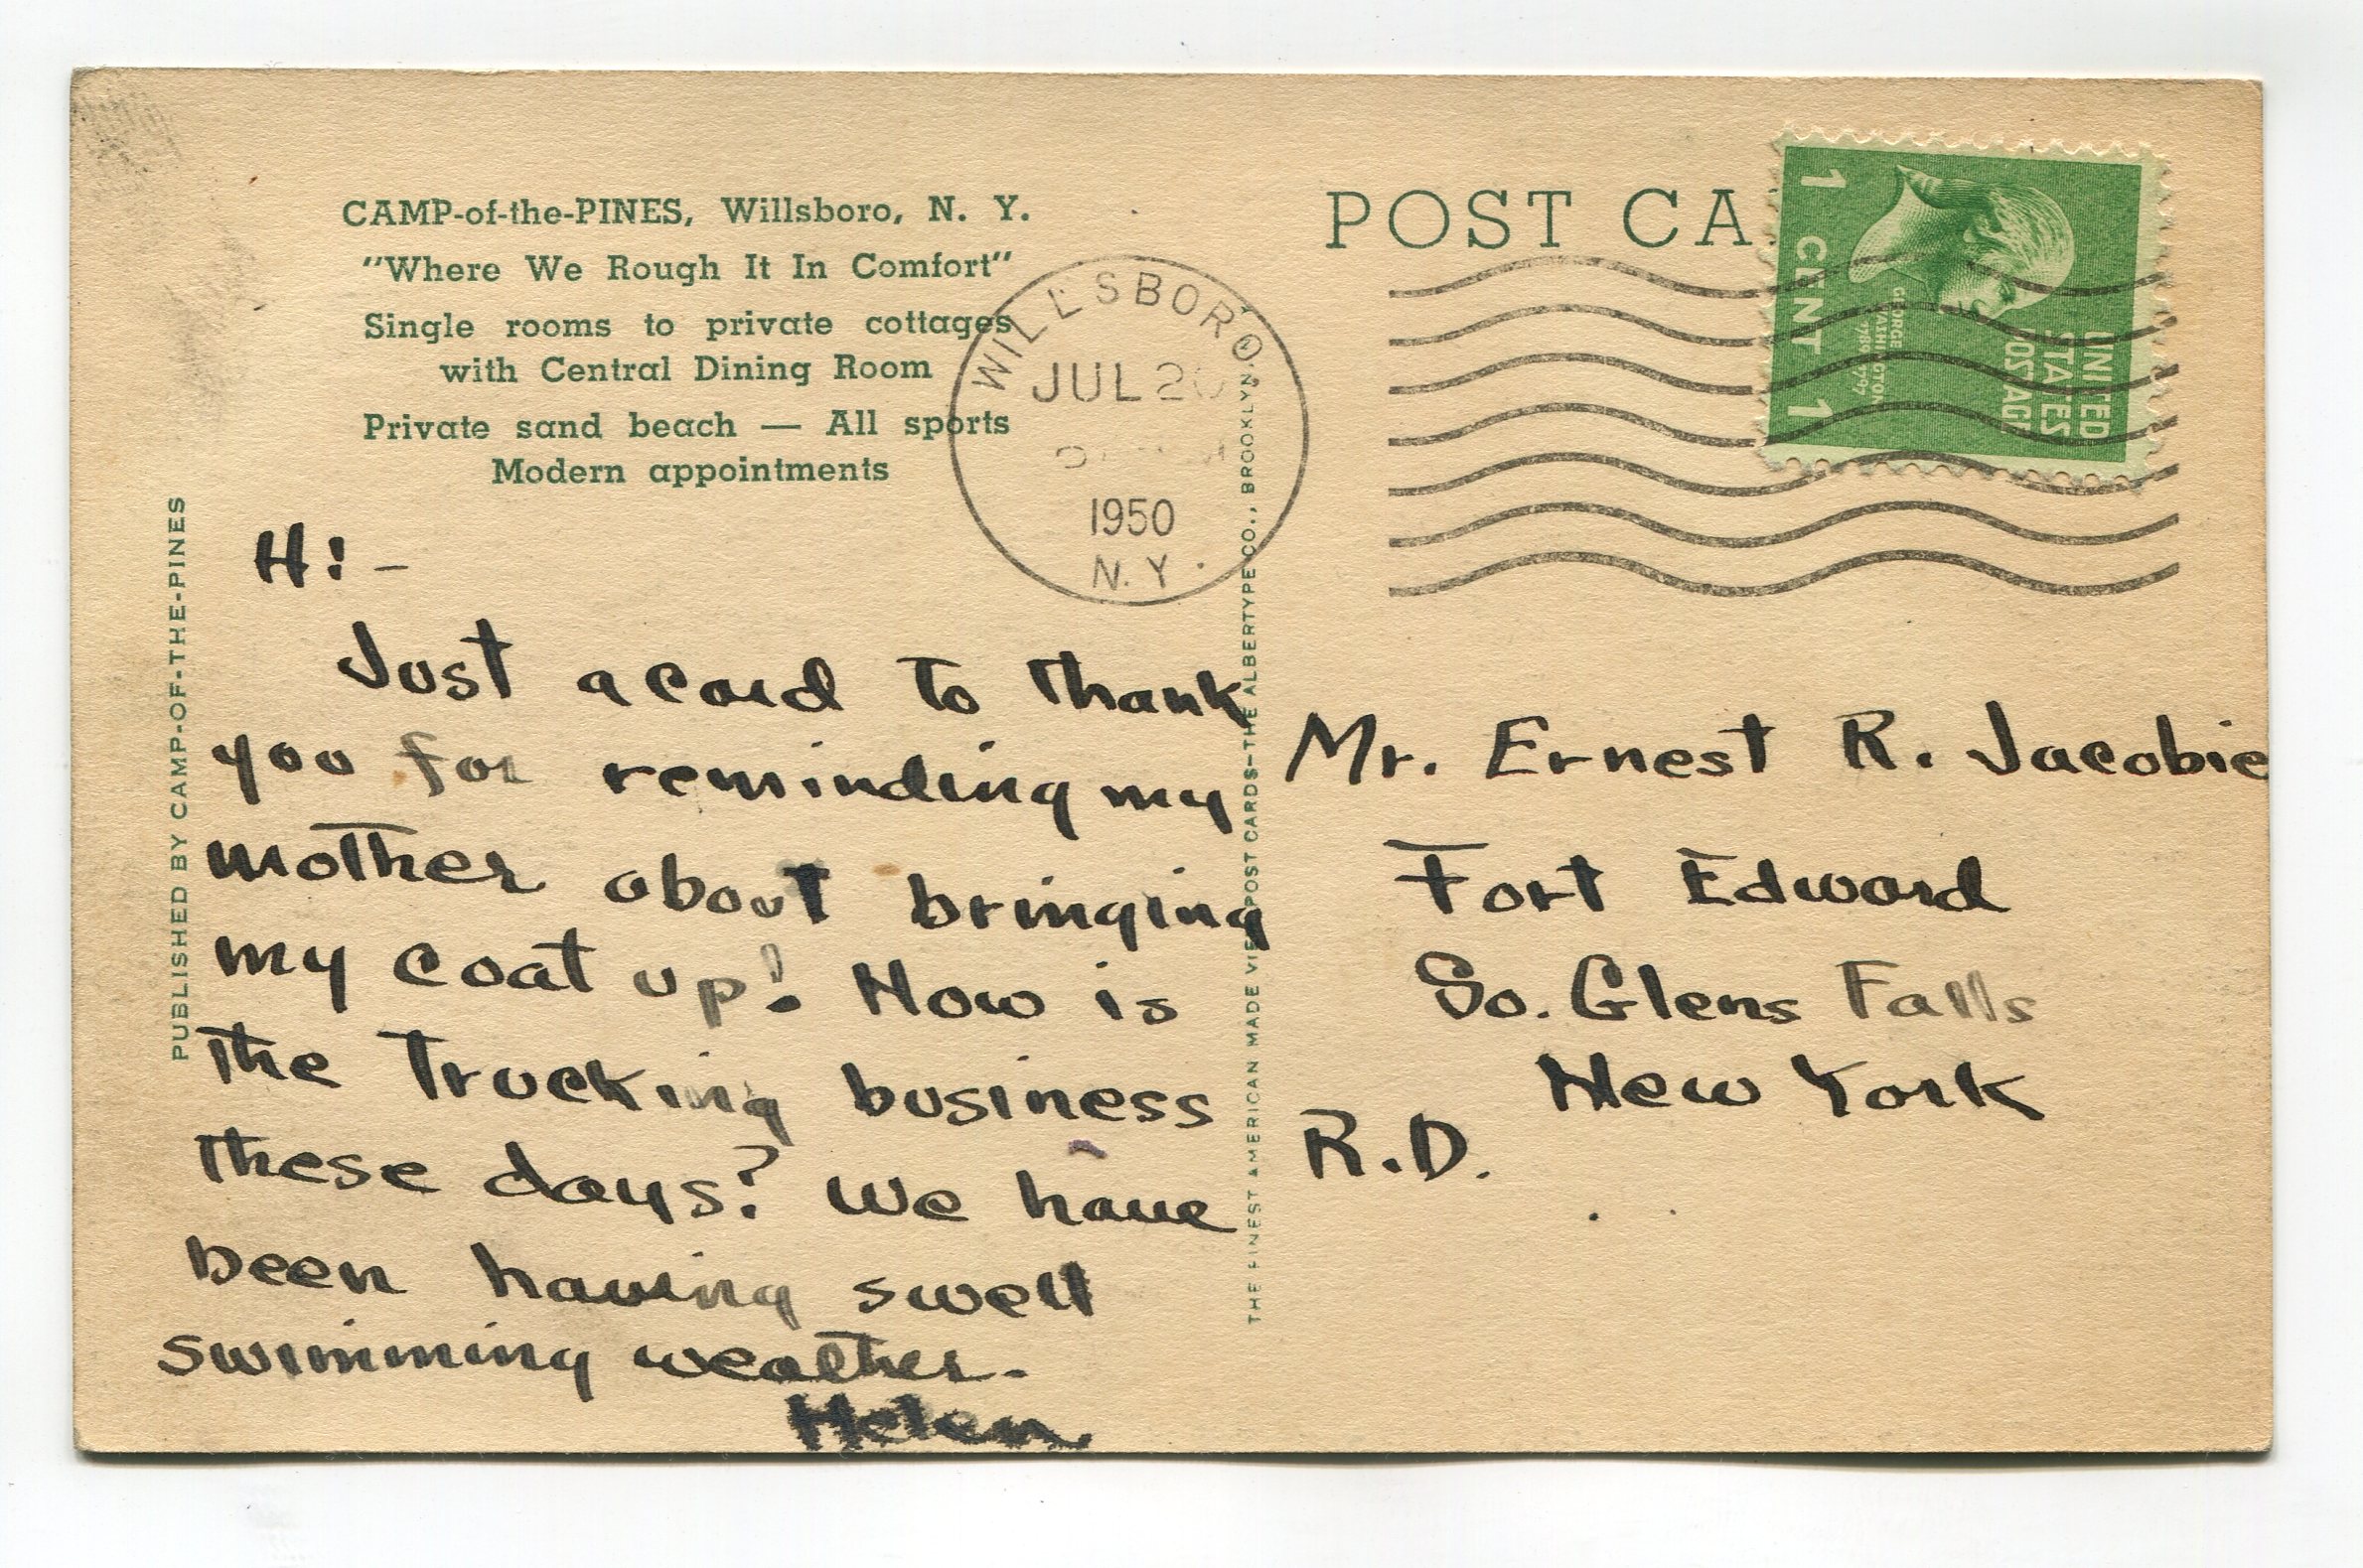 CAMP-of-the-PINES, Willsboro, N. Y.
"Where We Rough It In Comfort"
Single rooms to private cottages
with Central Dining Room
Private sand beach — All sports
Modern appointments
PUBLISHED BY CAMP-OF-THE-PINES
H! -
Just a card to thank
you for reminding my
mother about bringing
my coat up! How is
the trucking business
these days? We have
been having swell
swimming weather.
Helen
THE FINEST AMERICAN MADE VIEW POST CARDS—THE ALBERTYPE CO., BROOKLYN, N.Y.
WILLSBORO
JUL 20
1950
N. Y.
POST CA
1 CENT 1
GEORGE WASHINGTON
UNITED
STATES
POSTAGE
Mr. Ernest R. Jacobie
Fort Edward
So. Glens Falls
New York
R.D.